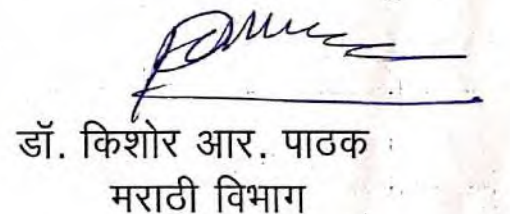 डॉ. किशोर आर. पाठक
मराठी विभाग